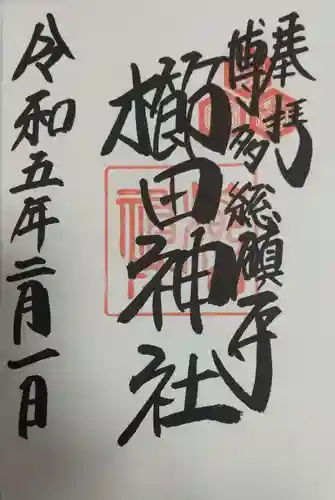 奉拝
博多総鎮守
櫛田神社
令和五年二月一日